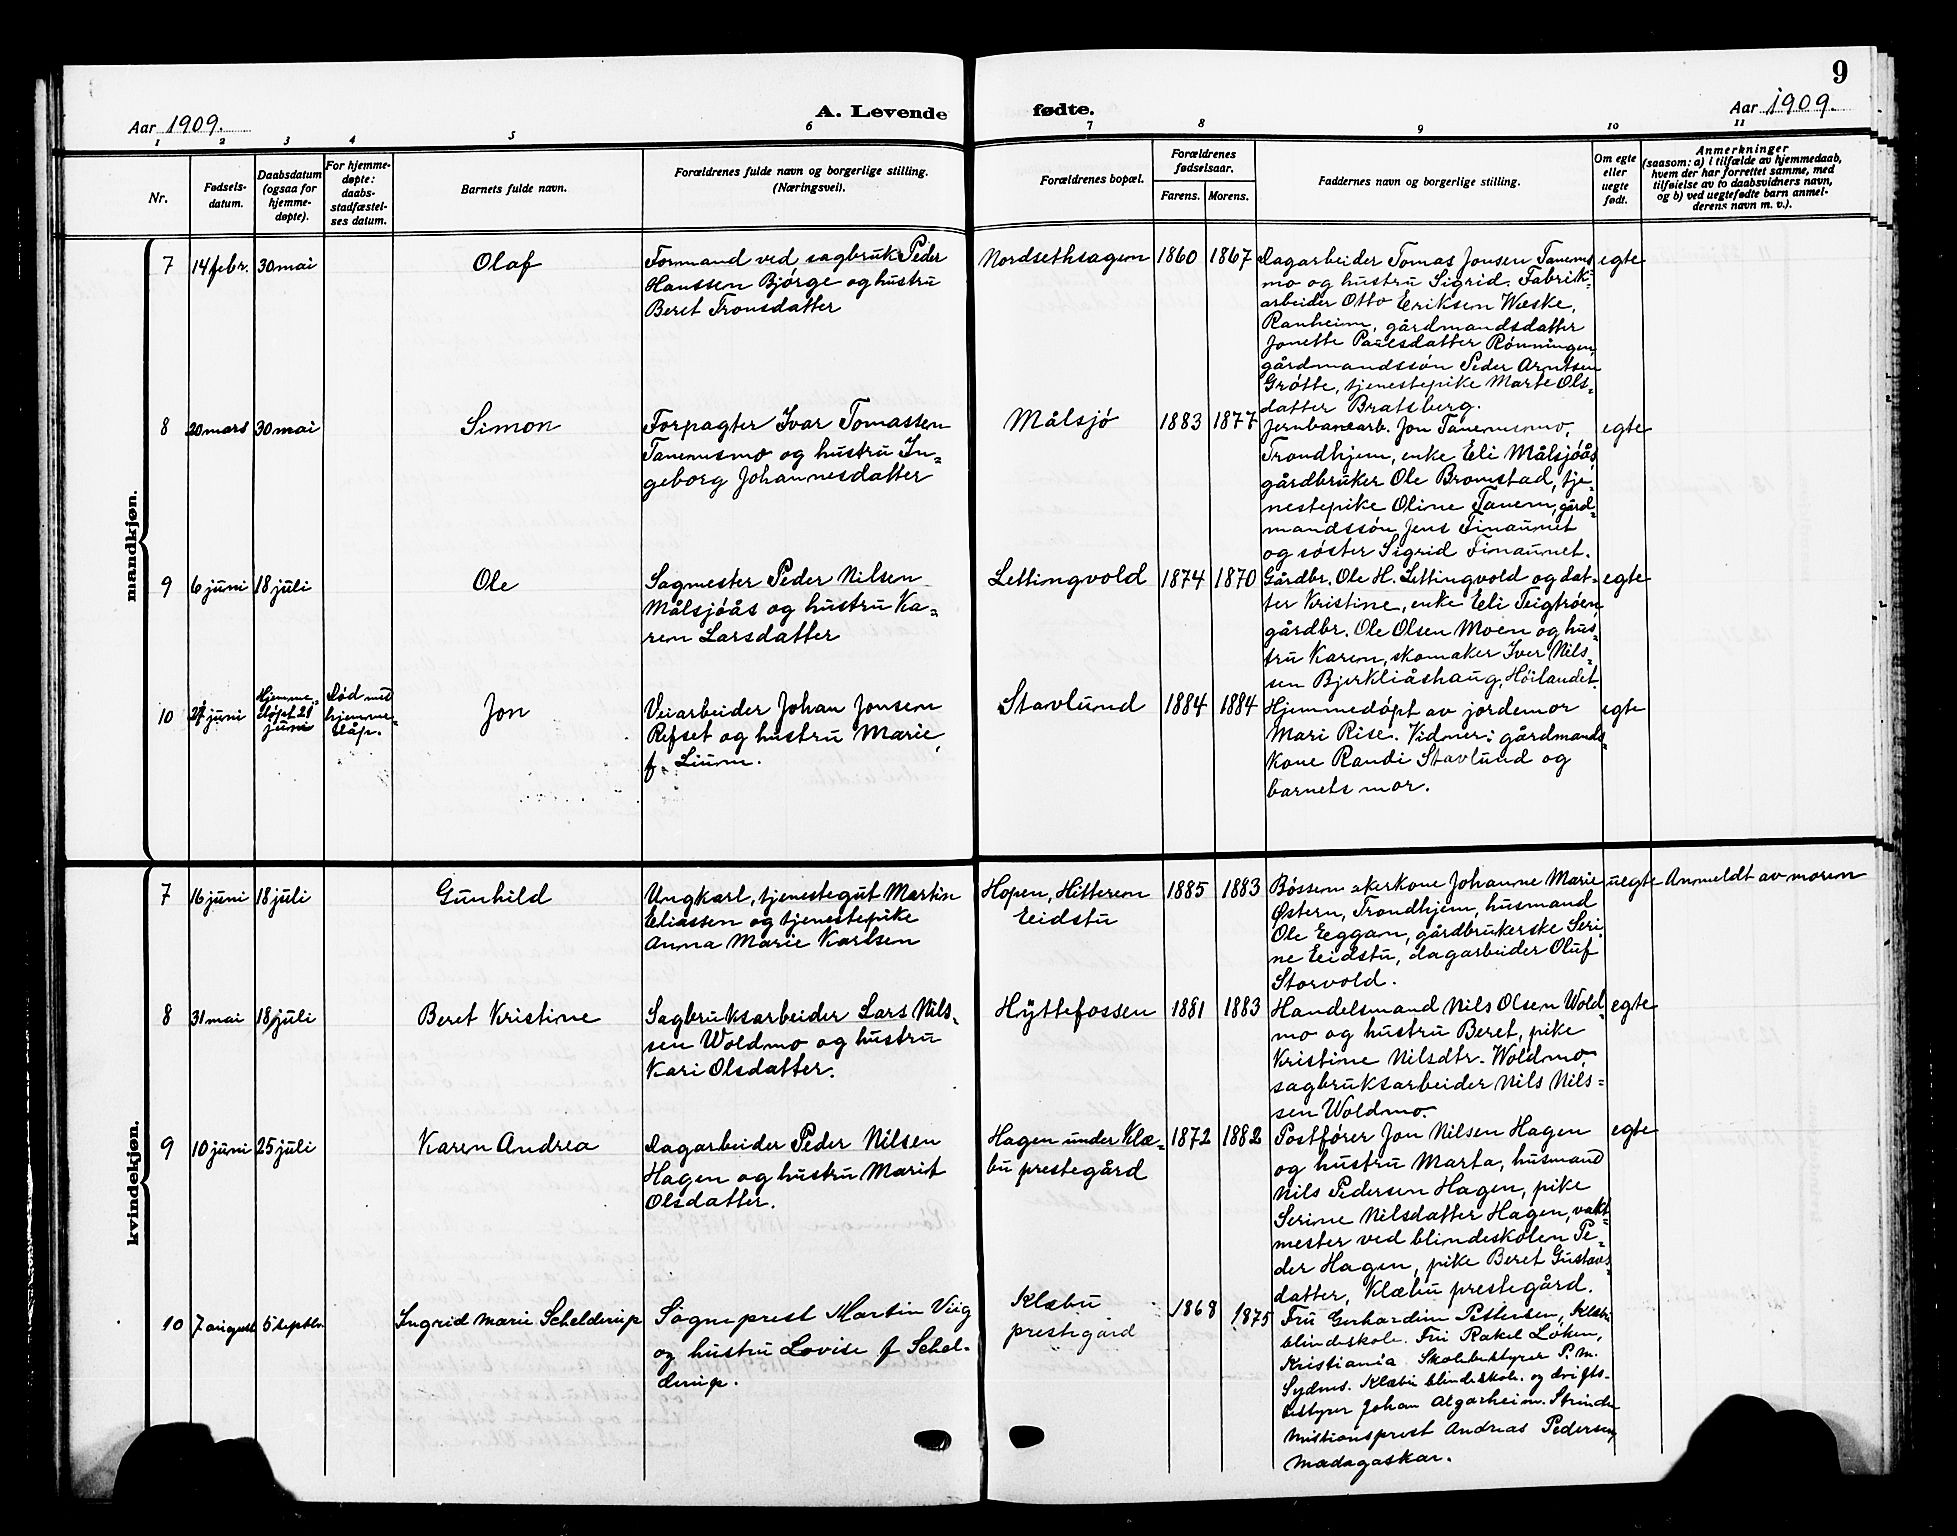 9
Aar 1909.
A. Levende
fødte.
Aar 1909.
1 2 3 4 5 6 7 8 9 10 11
Nr.
Fødsels-
datum.
Daabsdatum
(ogsaa for
hjemme-
døpte).
For hjemme-
døpte:
daabs-
stadfæstel-
ses datum.
Barnets fulde navn.
Forældrenes fulde navn og borgerlige stilling.
(Næringsvei).
Forældrenes bopæl.
Forældrenes
fødselsaar.
Farens. Morens.
Faddernes navn og borgerlige stilling.
Om egte
eller
uegte
født.
Anmerkninger
(saasom: a) i tilfælde av hjemmedaab,
hvem der har forrettet samme, med
tilføielse av to daabsvidners navn,
og b) ved uegtefødte barn anmel-
derens navn m. v.).
mandkjøn.
7
14 febr.
30 mai
Olaf
Formand ved sagbruk Peder
Hanssen Bjørge og hustru
Beret Tronsdatter
Nordsethsagen
1860
1867
Dagarbeider Tomas Jonsen Tanems
mo og hustru Sigrid. Fabrik-
arbeider Otto Eriksen Wæske,
Ranheim, gårdmandsdatter
Jonette Paulsdatter Rønningen,
gårdmandssøn Peder Arntsen
Grøtte, tjenestepike Marte Ols-
datter Bratsberg.
egte
8
20 mars
30 mai
Simon
Forpagter Ivar Tomassen
Tanemsmo og hustru In-
geborg Johannesdatter
Målsjø
1883
1877
Jernbanearb. Jon Tanemsmo,
Trondhjem, enke Eli Målsjøås,
gårdbruker Ole Bromstad, tje-
nestepike Oline Tanem, gård-
mandssøn Jens Fineaunet
og søster Sigrid Fineaunet.
egte
9
6 juni
18 juli
Ole
Sagmester Peder Nilsen
Målsjøås og hustru Ka-
ren Larsdatter
Lettingvold
1874
1870
Gårdbr. Ole H. Lettingvold og dat-
ter Kristine, enke Eli Teigtrøen,
gårdbr. Ole Olsen Moen og hus-
tru Karen, skomaker Iver Nils-
sen Bjerkliåshaug, Höilandet.
egte
10
juni
Hjemme-
døpt 21
juni
Død
hjemme-
dåp.
Jon
Veiarbeider Johan Jonsen
Refset og hustru Marie,
f. Lium.
Stavlund
1884
1884
Hjemmedøpt av jordemor
Mari Rise. Vidner: gårdmands-
kone Randi Stavlund og
barnets mor.
egte
kvindekjøn.
7
16 juni
18 juli
Gunhild
Ungkarl, tjenestegut Martin
Eliassen og tjenestepike
Anna Marie Karlsen
Hopen, Hitteren
Eidstu
1885
1883
Bøssemakerkone Johanne Marie
Østern, Trondhjem, husmand
Ole Eggan, gårdbrukerske Seri-
ne Eidstu, dagarbeider Oluf
Storvold.
uegte
Anmeldt av moren
8
31 mai
18 juli
Beret Kristine
Sagbruksarbeider Lars Nils-
sen Woldmo og hustru
Kari Olsdatter.
Hyttefossen
1881
1883
Handelsmand Nils Olsen Wold-
mo og hustru Beret, pike
Kristine Nilsdtr. Woldmo,
sagbruksarbeider Nils Nils-
sen Woldmo.
egte
9
10 juni
25 juli
Karen Andrea
Dagarbeider Peder Nilsen
Hagen og hustru Marit
Olsdatter.
Hagen under Klæ-
bu prestegård
1872
1882
Postfører Jon Nilsen Hagen
og hustru Marta, husmand
Nils Pedersen Hagen, pike
Serine Nilsdatter Hagen, vakt-
mester ved blindeskolen Pe-
der Hagen, pike Beret Gustavs-
datter, Klæbu prestegård.
egte
10
7 august
5 septbr.
Ingrid Marie Schelderup
Sogneprest Martin Viig
og hustru Lovise f Schel-
derup.
Klæbu
prestegård
1868
1875
Fru Gerhardine Pettersen, Klæbu
blindeskole. Fru Rakel Løken,
Kristiania. Skolebestyrer P. M.
Sydnes. Klæbu blindeskole. og drifts-
bestyrer Johan Algarheim. Strinden
Missionsprest Andreas Pedersen,
Madagaskar.